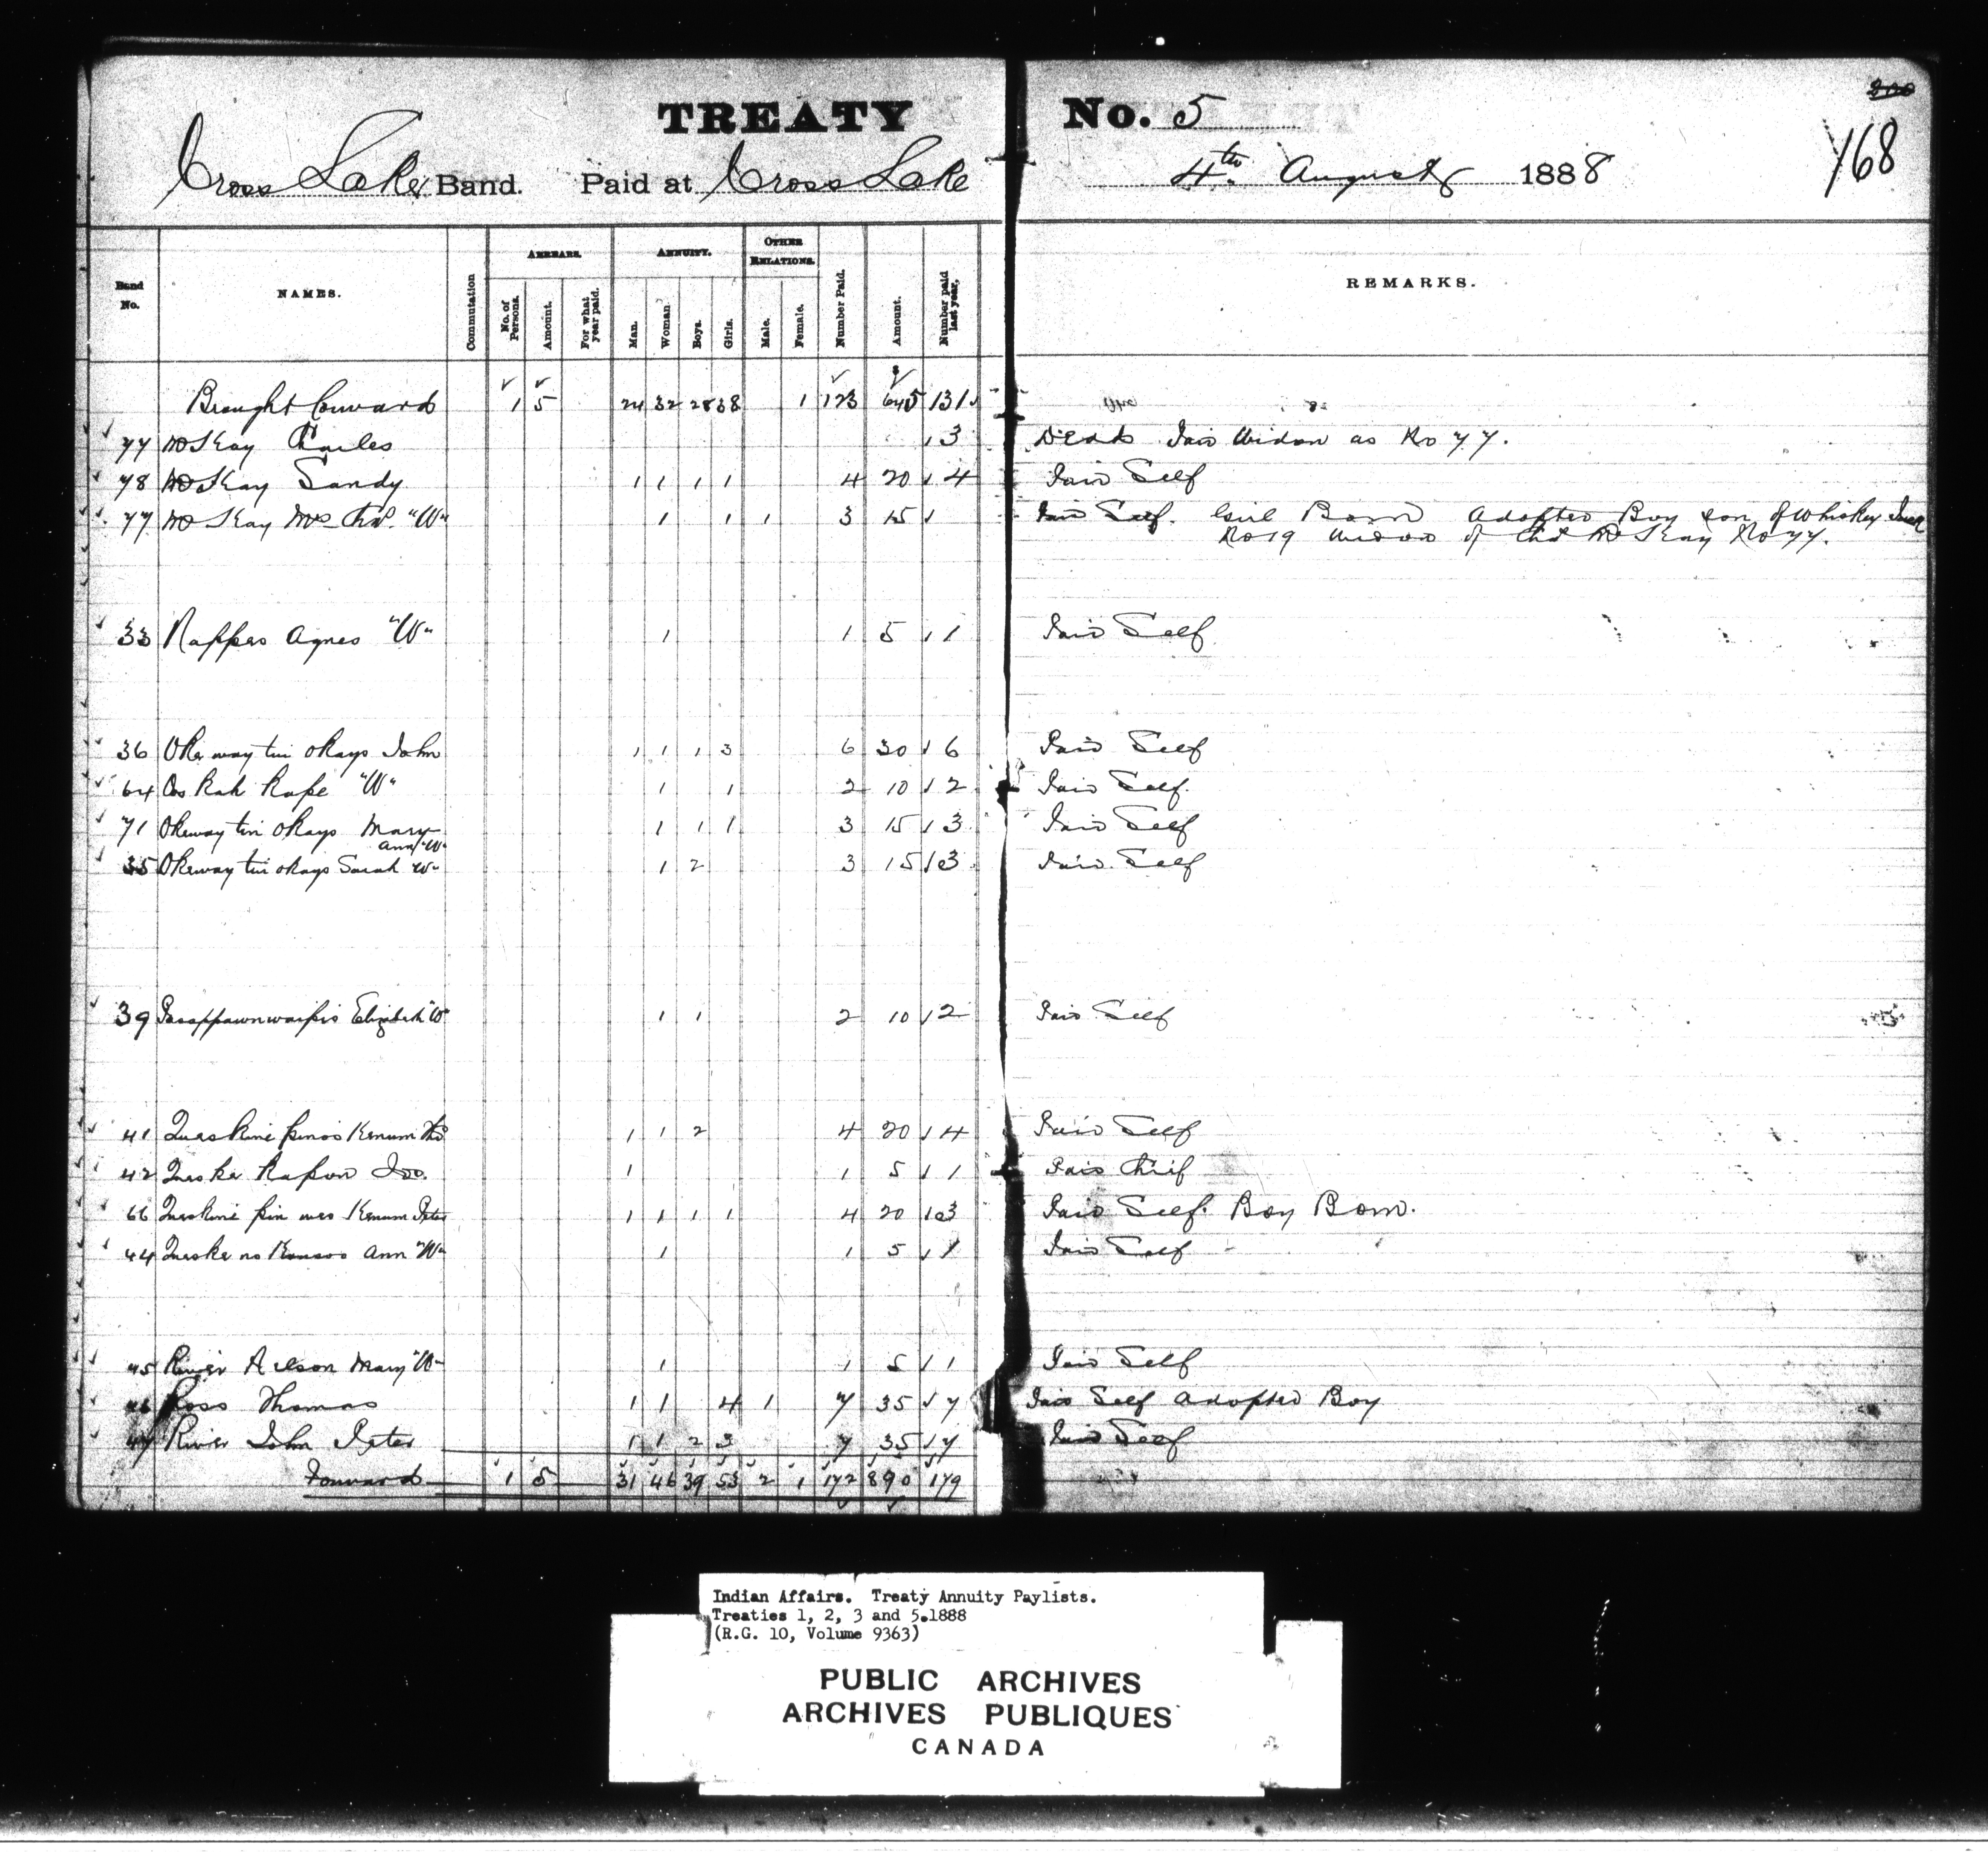 TREATY No. 5
168
Cross Lake Band. Paid at Cross Lake 4th August 1888
Band No. NAMES. Commutation ARREARS. No. of Persons. Amount. For what year paid. ANNUITY. Man. Woman Boys. Girls. OTHER RELATIONS. Male. Female. Number Paid. Amount. Number paid last year, REMARKS.
Brought Forward 1 5 24 32 28 38 1 123 645 131
77 McKay Charles 3 Dead Paid Widow as No 77.
78 McKay Sandy 1 1 1 1 4 20 4 Paid Self
77 McKay Mrs Chas. "W" 1 1 1 3 15 Paid Self. Girl Born Adopted Boy son of Whiskey Jack
No 19 Widow of Chas McKay No 77.
33 Nappes Agnes "W" 1 1 5 1 Paid Self
36 Okeway tin okays John 1 1 1 3 6 30 6 Paid Self
64 Os kah kape "W" 1 1 2 10 2 Paid Self.
71 Okeway tin okays Mary 1 1 1 3 15 3 Paid Self
Ann "W"
35 Okeway tin okays Sarah "W" 1 2 3 15 3 Paid Self
39 Elizabeth "W" 1 1 2 10 2 Paid Self
41 1 1 2 4 20 4 Paid Self
42 1 1 5 1 Paid Chief
66 Peter 1 1 1 1 4 20 3 Paid Self. Boy Born.
44 Ann "W" 1 1 5 1 Paid Self
45 River Nelson Mary "W" 1 1 5 1 Paid Self
46 Ross Thomas 1 1 4 1 7 35 7 Paid Self Adopted Boy
47 River John Peter 1 1 2 3 7 35 7 Paid Self
Forward 1 5 31 46 39 53 2 1 172 890 179
Indian Affairs. Treaty Annuity Paylists.
Treaties 1, 2, 3 and 5.1888
(R.G. 10, Volume 9363)
PUBLIC ARCHIVES
ARCHIVES PUBLIQUES
CANADA